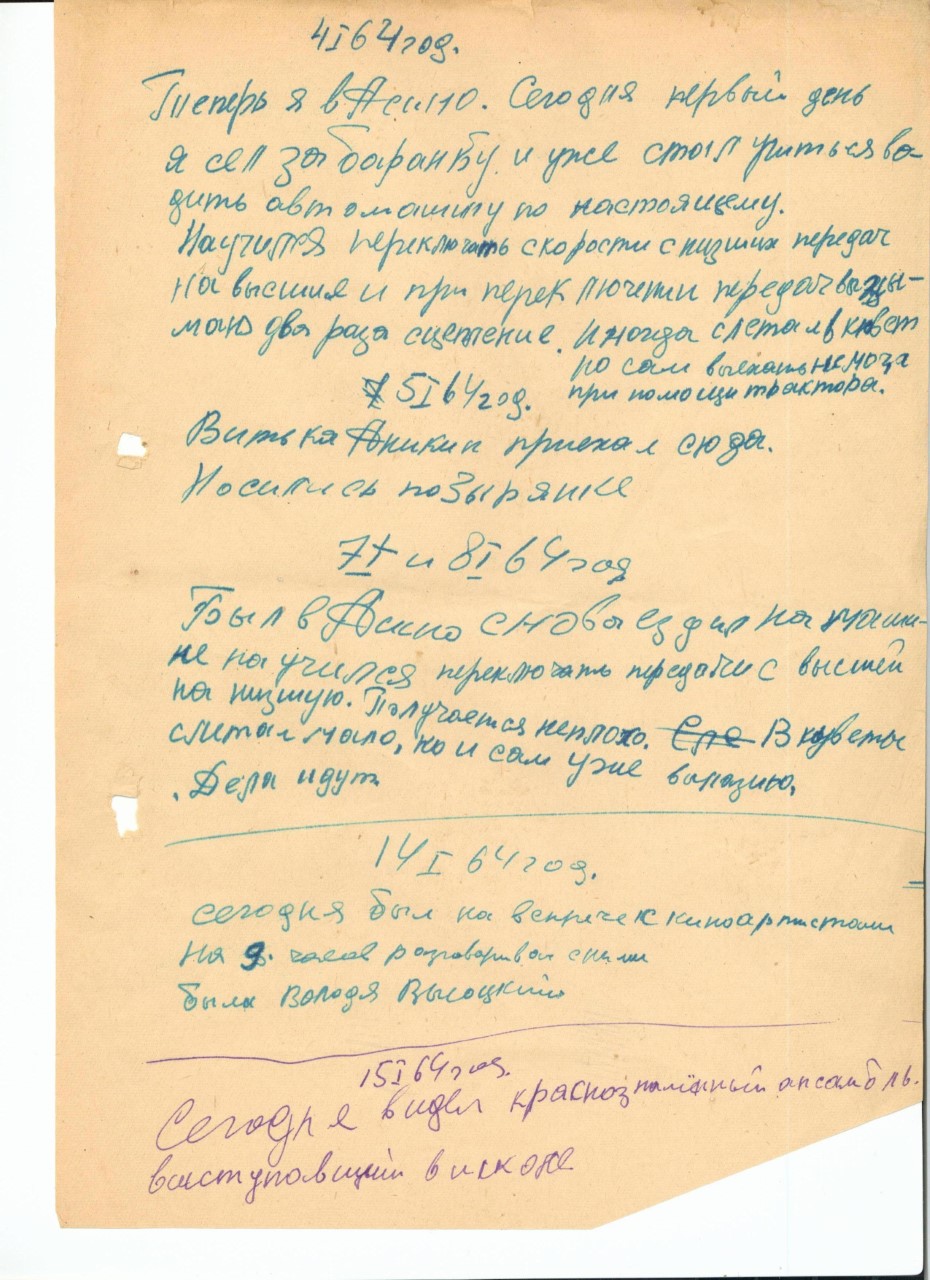 4 I 64 год.
Теперь я в Асино. Сегодня первый день
я сел за баранку и уже стал учиться во-
дить автомашину по настоящему.
Научился переключать скорости с низших передач
на высшия и при переключении передач выжы-
маю два раза сцепление. Иногда слетал в кювет
но сам выехать не мог а
при помощи трактора.
5 I 64 год.
Витька Аникин приехал сюда.
Носились по Зырянке
7 I и 8 I 64 год
Был в Асино снова ездил на маши-
не научился переключать передачи с высшей
на низшую. Получается неплохо. В кюветы
слетал мало, но и сам уже вылазию.
Дела идут
14 I 64 год.
сегодня был на встрече с киноартистами
На 9. часов разговаривал с ними
был Володя Высоцкий
15 I 64 год.
Сегодня видел краснознамённый ансамбль.
выступавший в